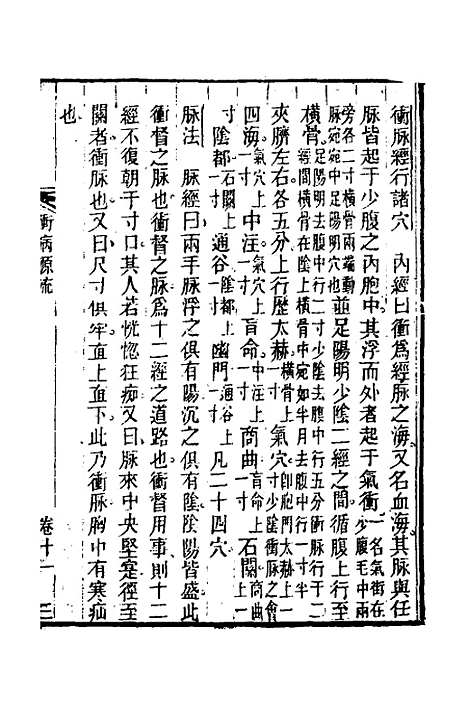 衝脉經行諸穴　內經曰衝爲經脉之海又名血海其脉與任
脉皆起于少腹之內胞中其浮而外者起于氣衝一名氣街在少腹毛中兩
旁各二寸橫骨兩端動脉宛宛中足陽明穴也並足陽明少陰二經之間循腹上行至
橫骨足陽明去腹中行二寸少陰去腹中行五分衝脉行于二經間橫骨在陰上橫骨中宛如半月去腹中行一寸半
夾臍左右各五分上行歷太赫橫骨上一寸氣穴即胞門太赫上一寸少陰衝脉之會
四海一寸氣穴上中注氣穴上一寸肓命中注上一寸商曲肓命上一寸石關商曲上一
寸陰都石關上一寸通谷陰都上一寸幽門通谷上一寸凡二十四穴
脉法　脉經曰兩手脉浮之俱有陽沉之俱有陰陰陽皆盛此
衝督之脉也衝督之脉爲十二經之道路也衝督用事則十二
經不復朝于寸口其人若恍惚狂痴又曰脉來中央堅實徑至
關者衝脉也又曰尺寸俱牢直上直下此乃衝脉胸中有寒疝
也
衝病源流
卷十一
三